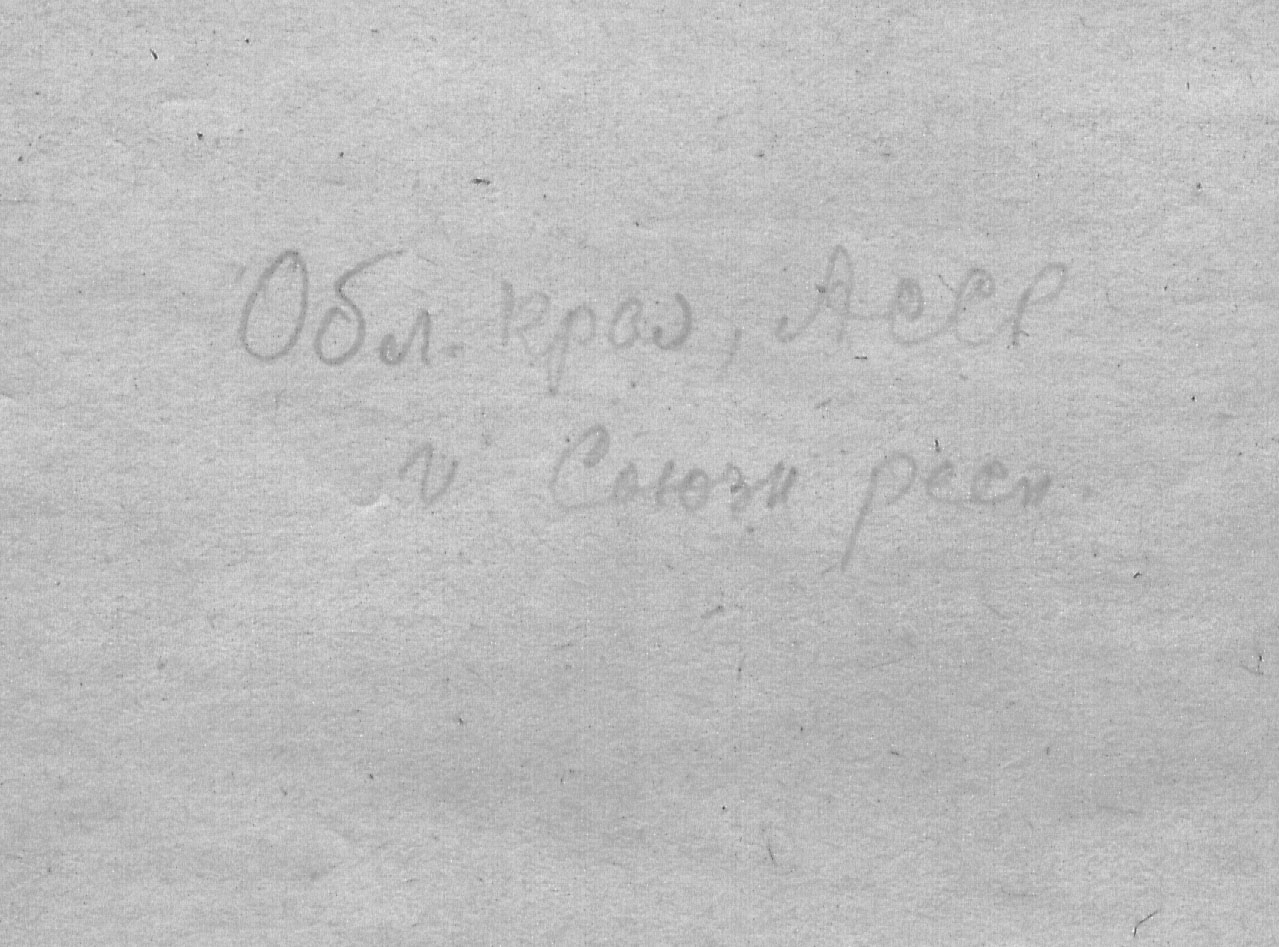 Обл. края, АССР
и Союзн респ.